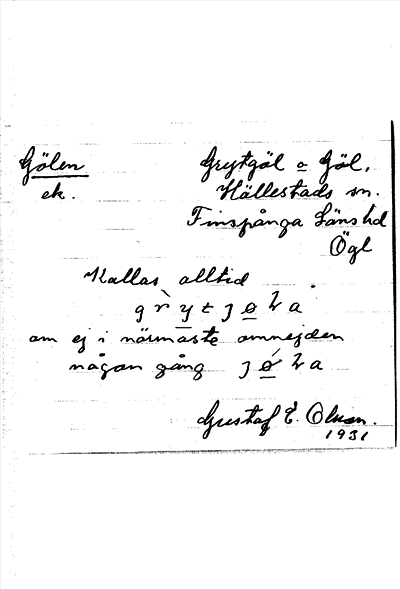 Gölen
ek.
Grytgöl o Göl,
Hällestads sn.
Finspånga Länshd
Ögl
Kallas alltid
gr̀y̲tjø̲ɀa.
om ej i närmaste omnejden
någon gång jǿ̲ɀa
Gustaf E. Olsson.
1931